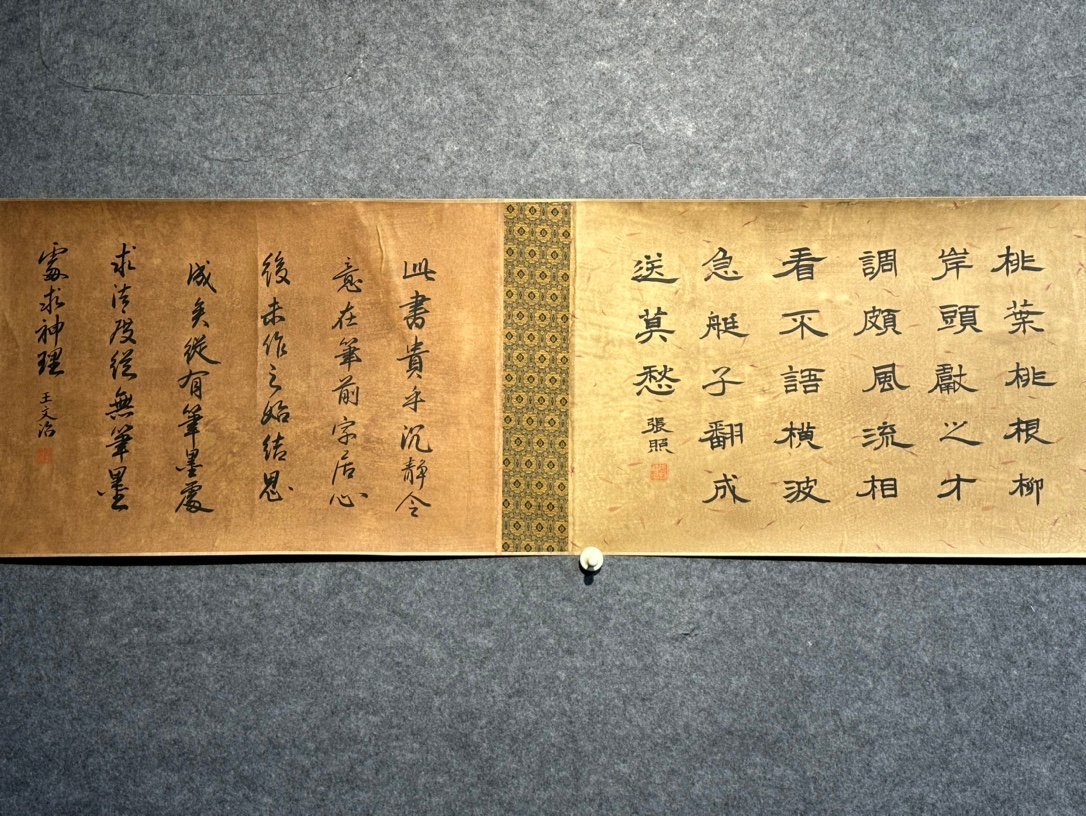 桃葉桃根柳
岸頭獻之才
調頗風流相
看不語橫波
急艇子翻成
送莫愁
張照
此書貴乎沉靜令
意在筆前字居心
後未作之始結思
成矣從有筆墨處
求法度從無筆墨
處求神理
王文治